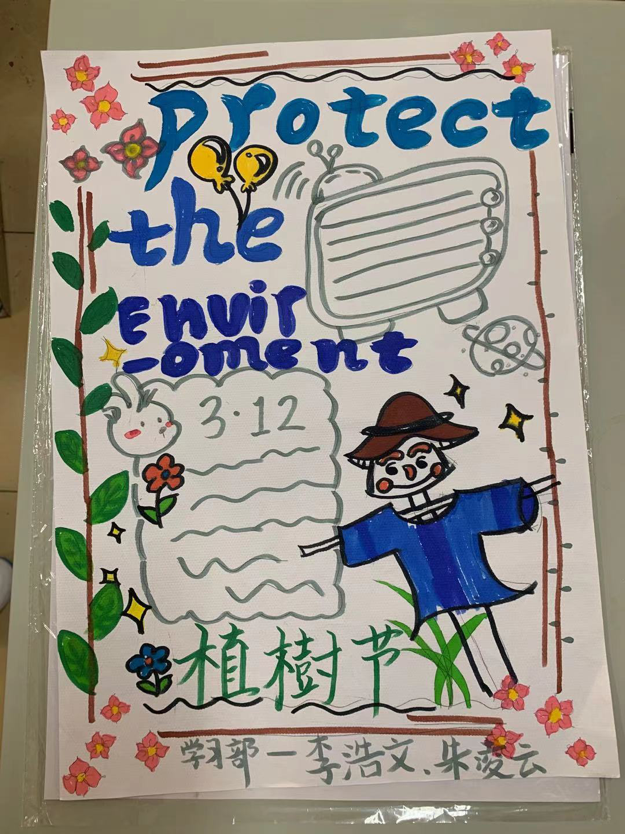 protect
the
Envir
-oment
3·12
植樹节
学习部一李浩文、朱凌云